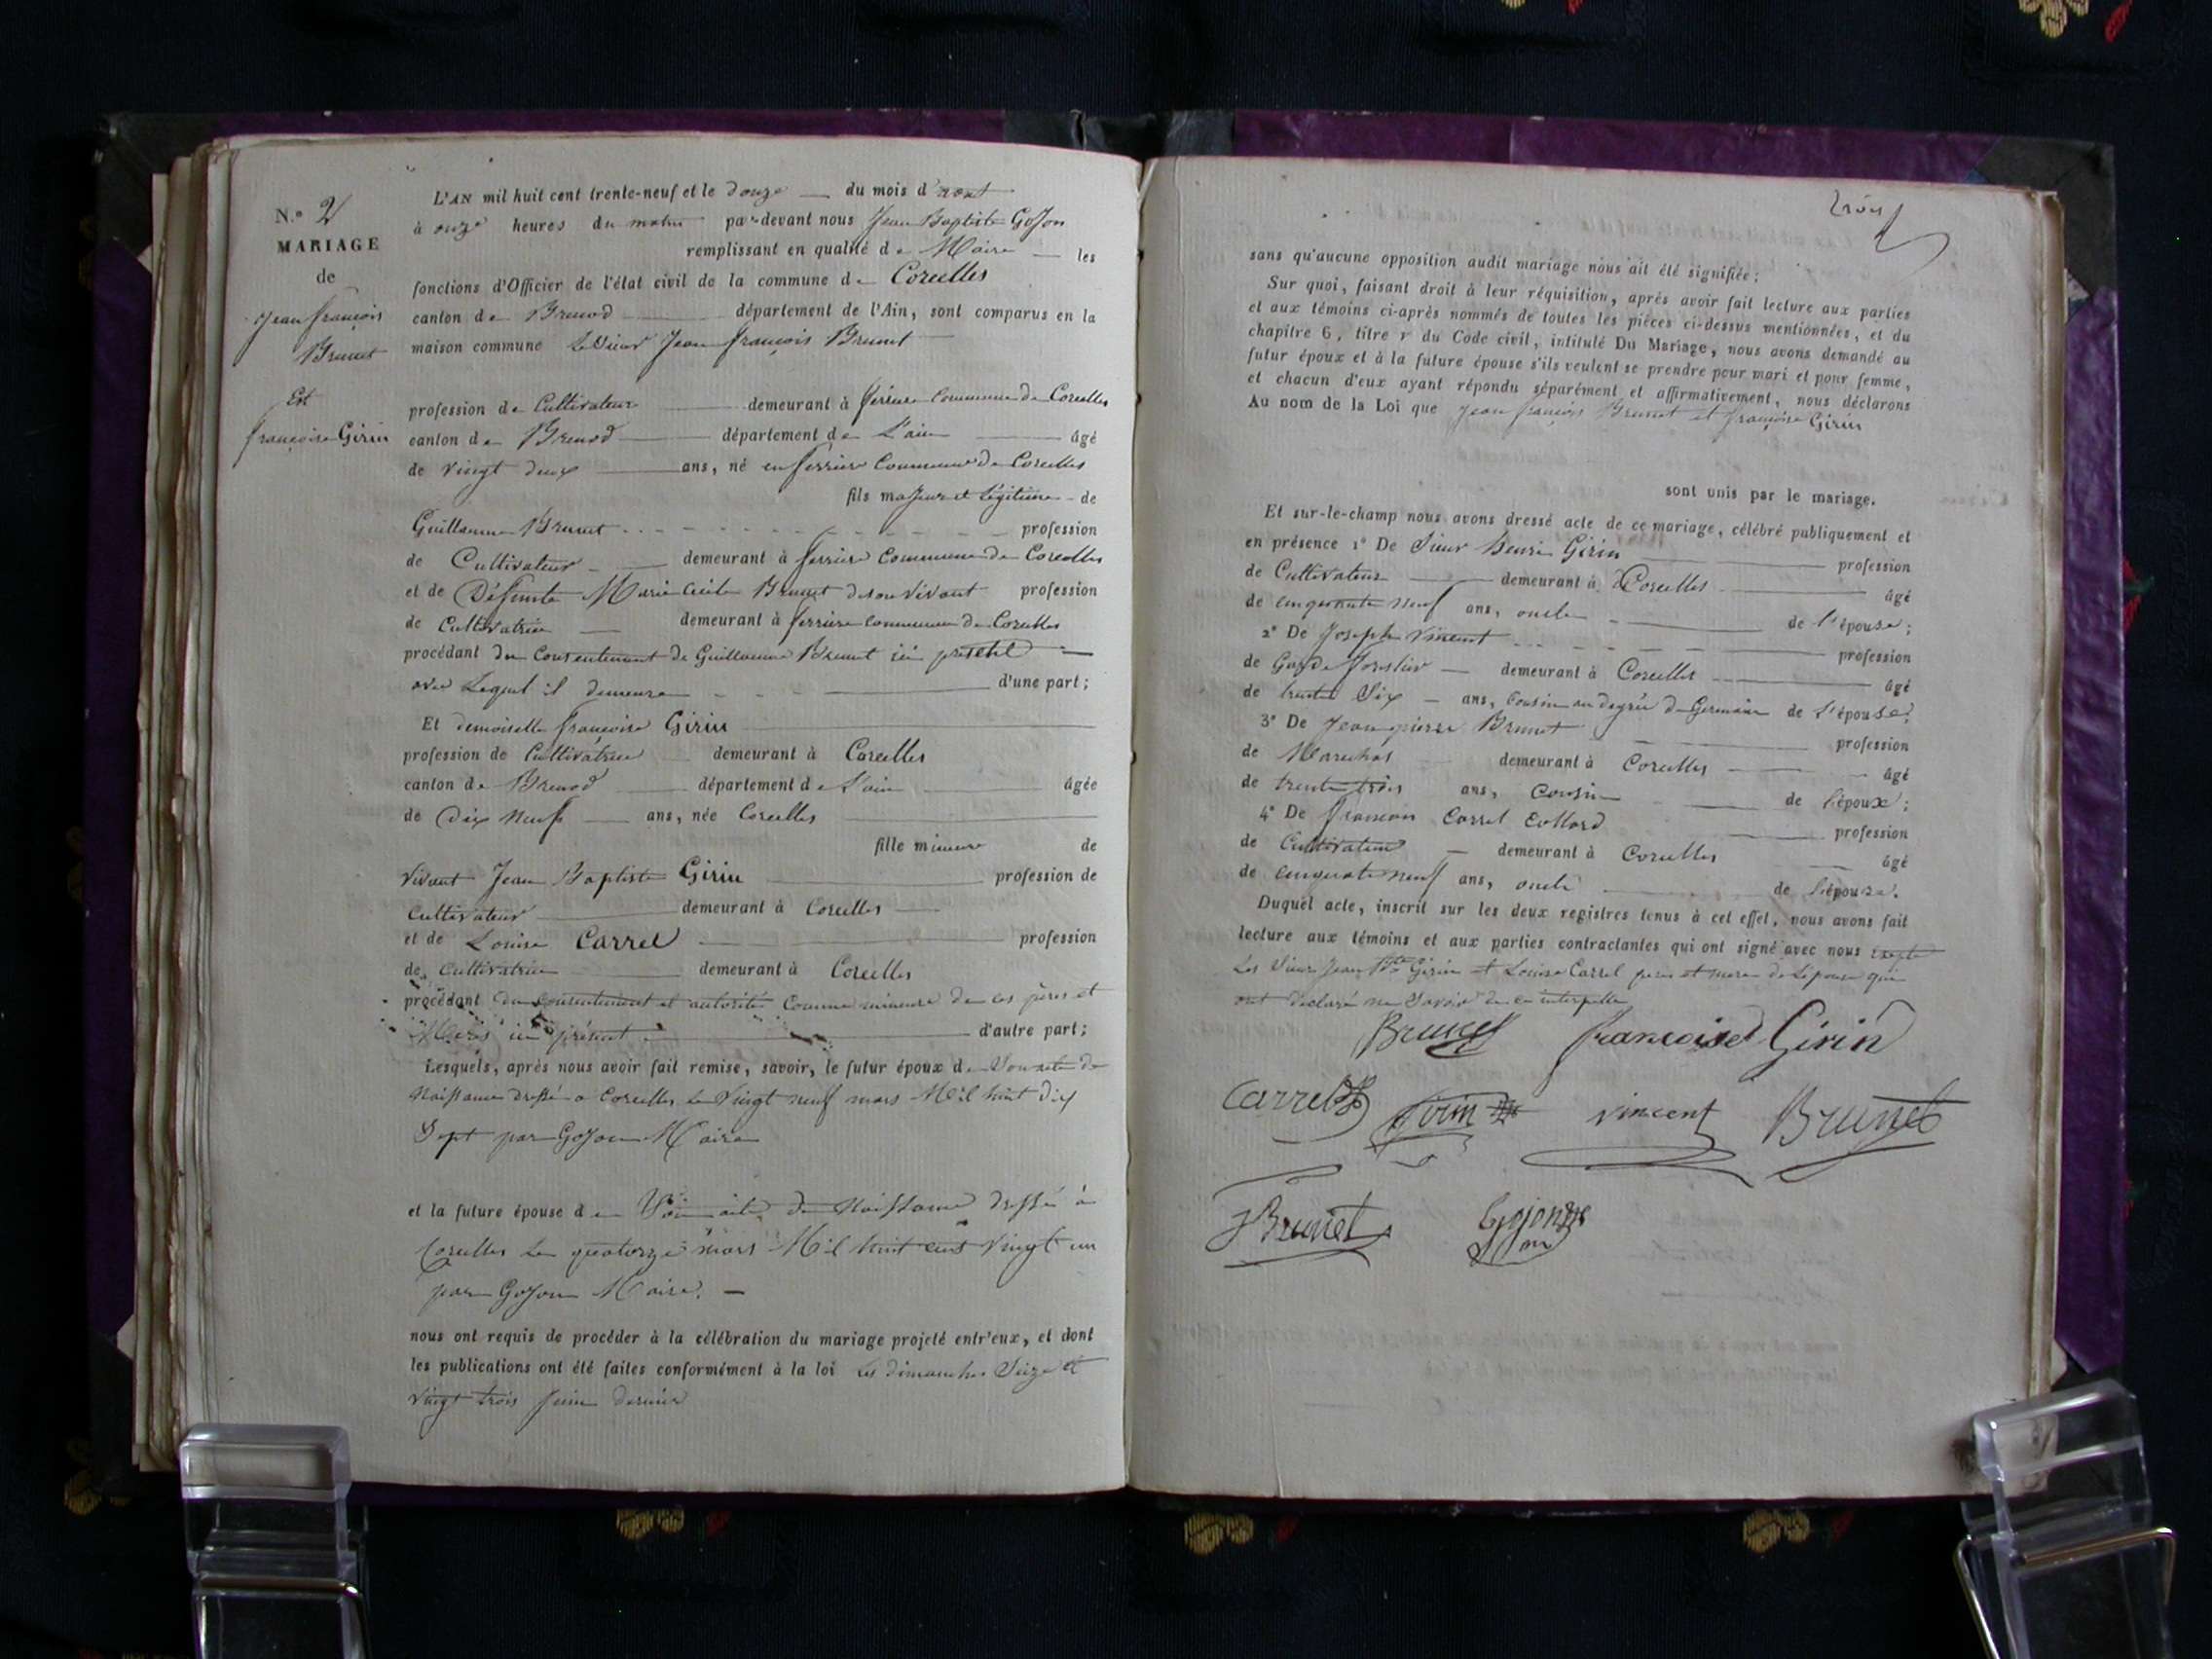 N.o 2
MARIAGE
de
Jean françois
Brunet
Et
françoise Girin
L'AN mil huit cent trente-neuf et le douze du mois d'aout
à onze heures du matin par-devant nous Jean Baptiste Gojon
remplissant en qualité de Maire les
fonctions d'Officier de l'état civil de la commune de Corcelles
canton de Brenod département de l'Ain, sont comparus en la
maison commune Le Sieur Jean françois Brunet
profession de Cultivateur demeurant à ferriere Commune de Corcelles
canton de Brenod département de L'ain âgé
de vingt deux ans, né en ferriere Commune de Corcelles
fils majeur et Légitime de
Guillaume Brunet profession
de Cultivateur demeurant à ferriere Commune de Corcelles
et de Défunte Marie Cécile Brunet de son vivant profession
de Cultivatrice demeurant à ferriere Commune de Corcelles
procédant du Consentement de Guillaume Brunet ici présent
avec Lequel il demeure d'une part;
Et demoiselle françoise Girin
profession de Cultivatrice demeurant à Corcelles
canton de Brenod département de L'ain âgée
de Dix neuf ans, née Corcelles
fille mineure de
vivant Jean Baptiste Girin profession de
Cultivateur demeurant à Corcelles
et de Louise Carrel profession
de Cultivatrice demeurant à Corcelles
procédant du consentement et autorité Comme mineure de ces père et
Mere ici présent d'autre part;
Lesquels, après nous avoir fait remise, savoir, le futur époux de Son acte de
Naissance dressé a Corcelles Le Vingt neuf mars Mil huit Dix
Sept par Gojon Maire
et la future épouse de Son acte de Naissance dressé à
Corcelles Le quatorze mars Mil huit cent Vingt un
par Gojon Maire.
nous ont requis de procéder à la célébration du mariage projeté entr'eux, et dont
les publications ont été faites conformément à la loi Les dimanches Seize et
vingt trois Juin dernier
trois
sans qu'aucune opposition audit mariage nous ait été signifiée;
Sur quoi, faisant droit à leur réquisition, après avoir fait lecture aux parties
et aux témoins ci-après nommés de toutes les pièces ci-dessus mentionnées, et du
chapitre 6, titre v du Code civil, intitulé Du Mariage, nous avons demandé au
futur époux et à la future épouse s'ils veulent se prendre pour mari et pour femme,
et chacun d'eux ayant répondu séparément et affirmativement, nous déclarons
Au nom de la Loi que Jean françois Brunet et françoise Girin
sont unis par le mariage.
Et sur-le-champ nous avons dressé acte de ce mariage, célébré publiquement et
en présence 1° De Sieur henri Girin profession
de Cultivateur demeurant à Corcelles âgé
de cinquante neuf ans, oncle de l'épouse;
2° De Joseph Vincent profession
de Garde forestier demeurant à Corcelles âgé
de trente Six ans, Cousin au degrée de Germain de L'épouse;
3° De Jean pierre Brunet profession
de Marechal demeurant à Corcelles âgé
de trente trois ans, Cousin de l'époux;
4° De françois Carrel Collard profession
de Cultivateur demeurant à Corcelles âgé
de cinquante neuf ans, oncle de l'épouse.
Duquel acte, inscrit sur les deux registres tenus à cet effet, nous avons fait
lecture aux témoins et aux parties contractantes qui ont signé avec nous excepté
Les Sieurs Jean Bte Girin et Louise Carrel pere et mere de L'épouse qui
ont declaré ne Savoir de ce interpellé
Brunet françoise Girin
Carrel Girin Vincent Brunet
JBrunet Gojon